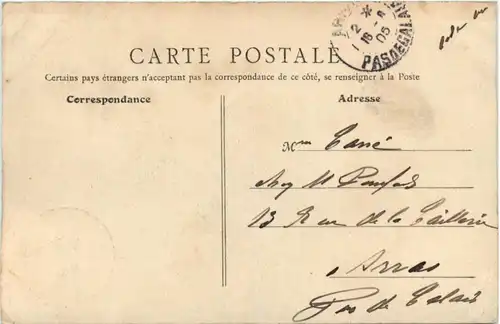 CARTE POSTALE
Certains pays étrangers n'acceptant pas la correspondance de ce côté, se renseigner à la Poste
Correspondance
Adresse
2 *
16 - 8
05
PAS DE CALAIS
Mme
13 Rue de la Taillerie
Arras
Pas de Calais